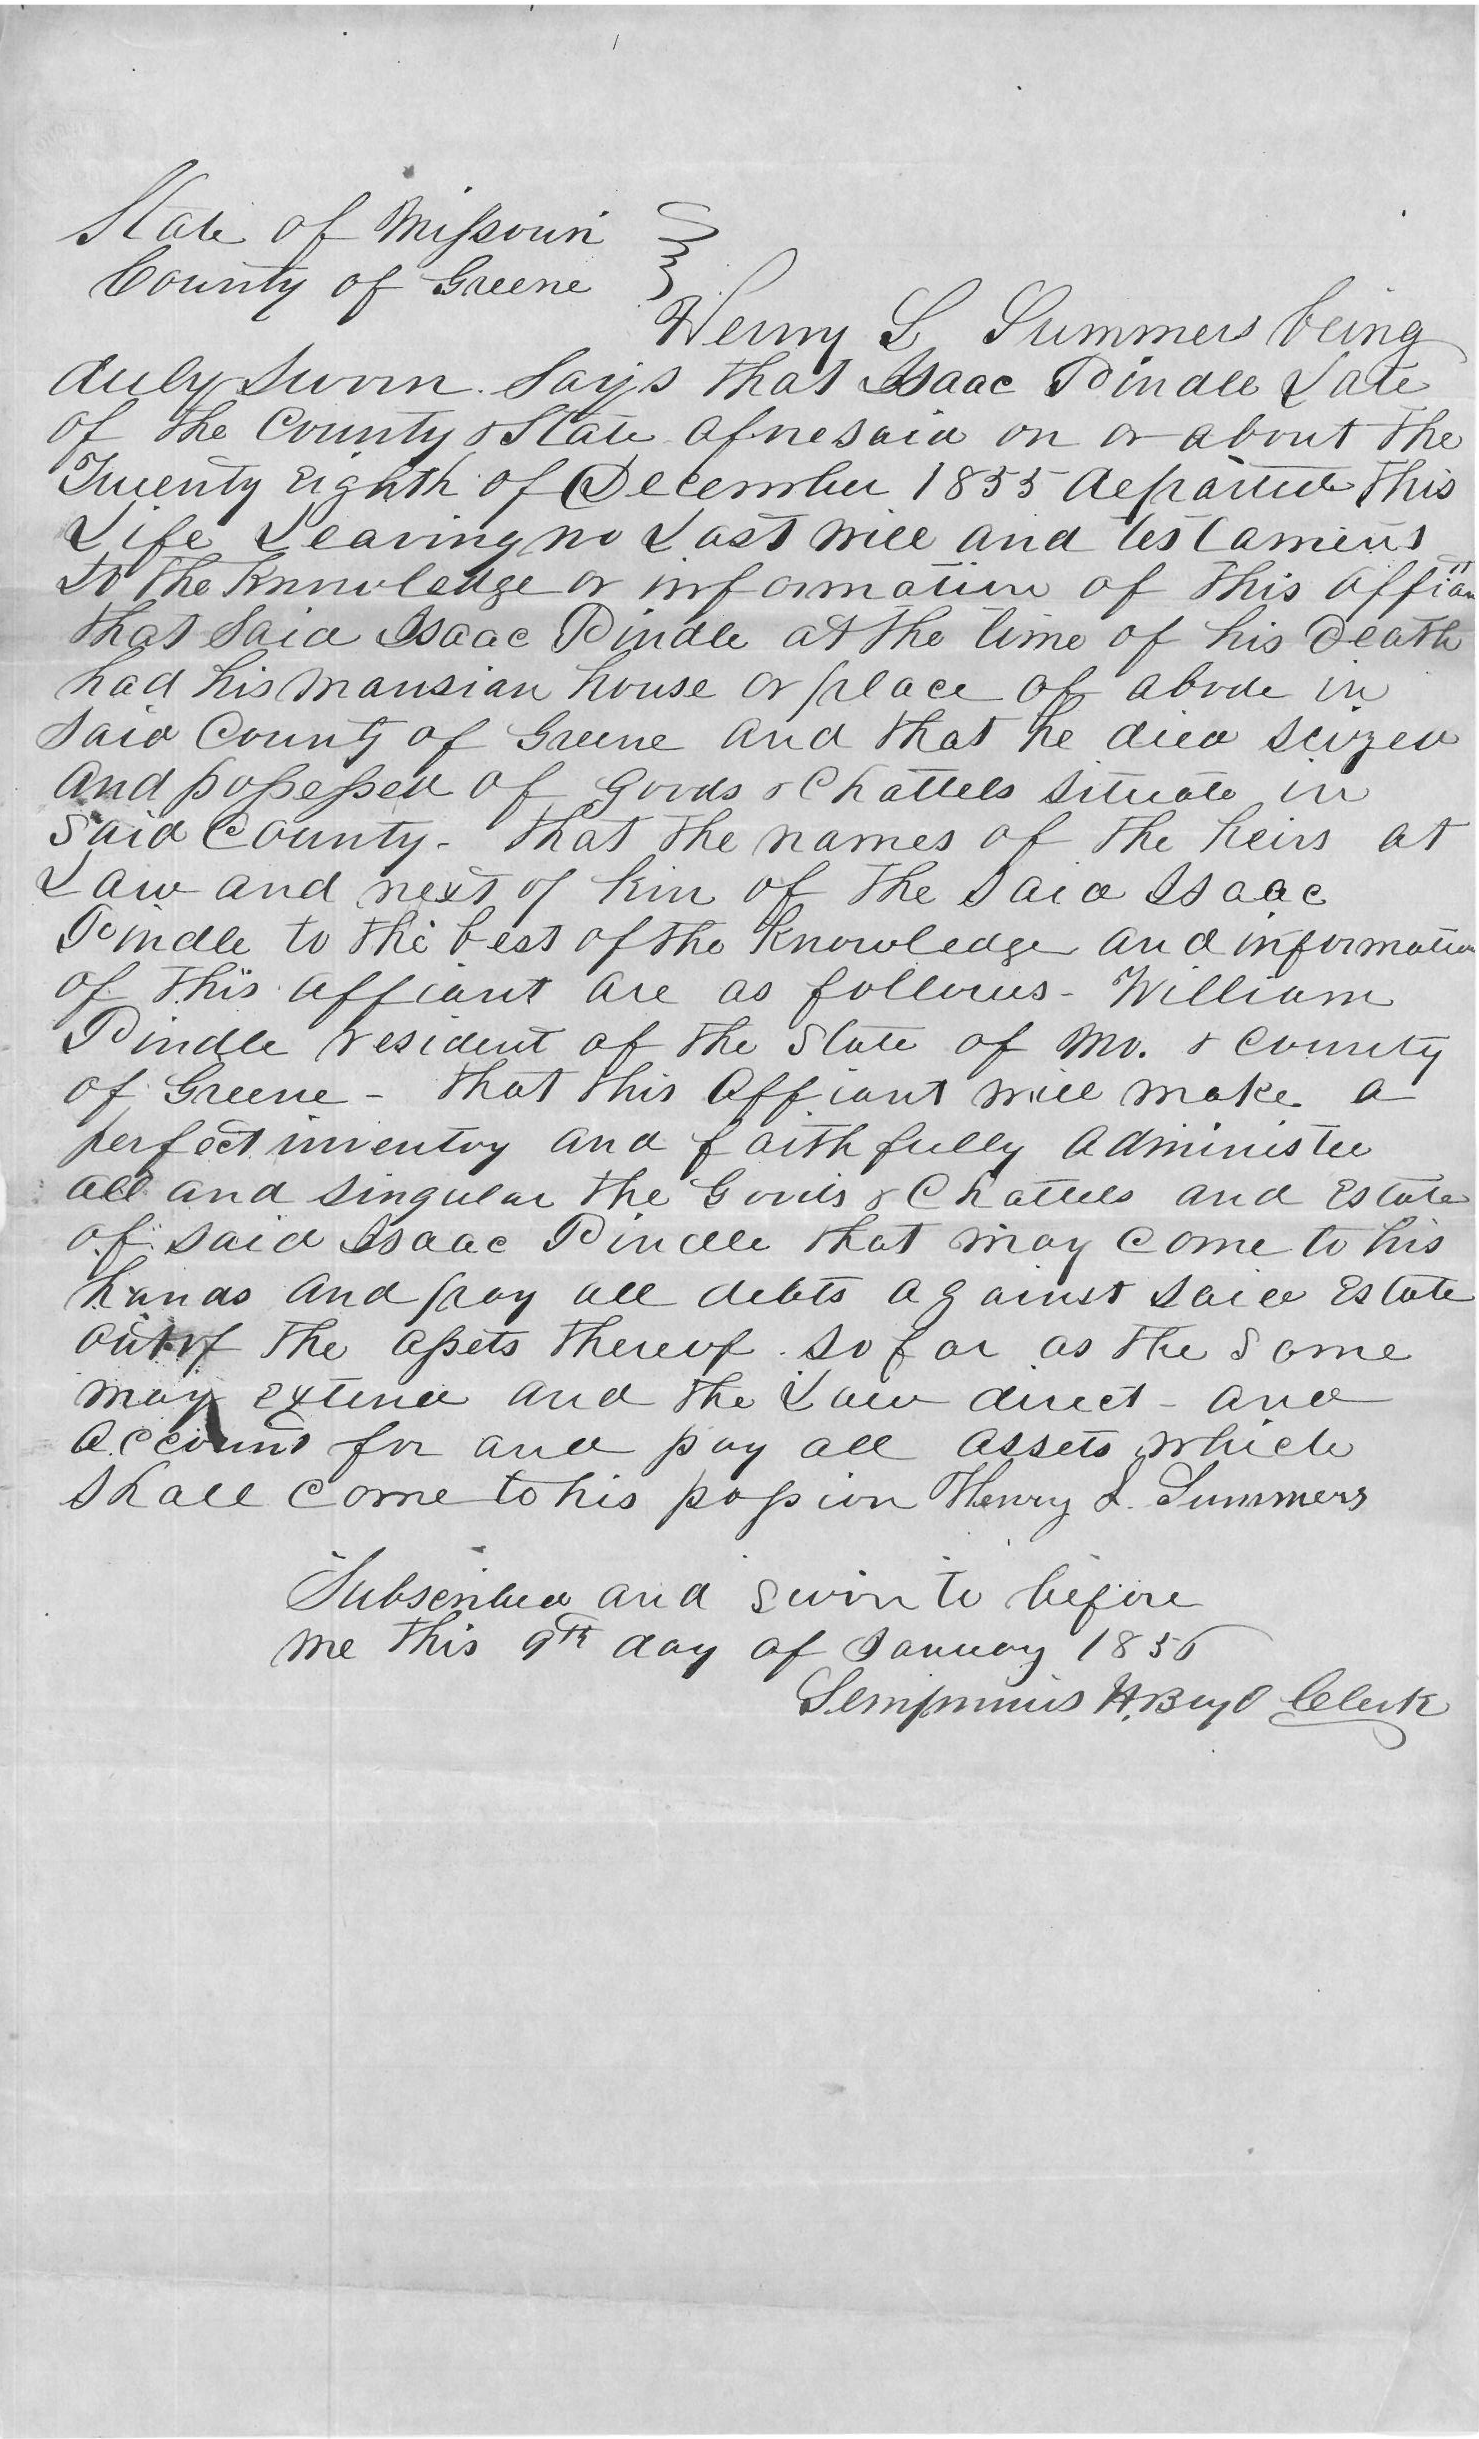 State of Missouri
County of Greene
Henry L Summers being
duly sworn says that Isaac Pindle Late
of the County & State aforesaid on or about the
Twenty Eighth of December 1855 departed this
Life Leaving no Last will and testament
to the Knowledge or information of this affiant
that said Isaac Pindle at the time of his Death
had his mansian house or place of abode in
said County of Greene and that he died seized
and possessed of Goods & Chattels situate in
said County - that the names of the heirs at
Law and next of kin of the said Isaac
Pindle to the best of the Knowledge and information
of this affiant are as follows - William
Pindle resident of the State of Mo. & County
of Greene - that this Affiant will make a
perfect inventory and faithfully administer
all and singular the Goods & Chattels and Estate
of said Isaac Pindle that may come to his
hands and pay all debts against said Estate
out of the assets thereof so far as the same
may extend and the Law direct - and
account for and pay all assets which
shall come to his possion Henry L. Summers
Subscribed and sworn to before
me this 9th day of January 1856
Sempronius H. Boyd Clerk